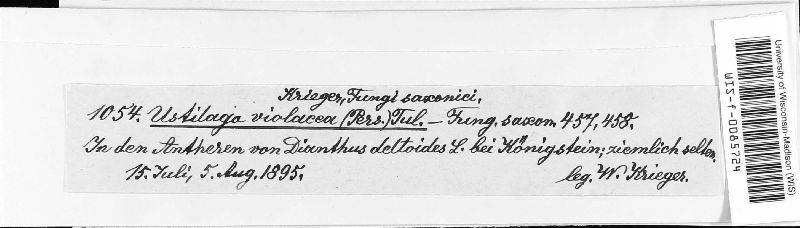 Krieger, Fungi saxonici.
1054. Ustilago violacea (Pers.) Tul. – Fung. saxon. 457, 458.
In den Antheren von Dianthus deltoides L. bei Königstein; ziemlich selten.
15. Juli, 5. Aug. 1895. leg. W. Krieger.
University of Wisconsin-Madison (WIS)
WIS-f-0085724